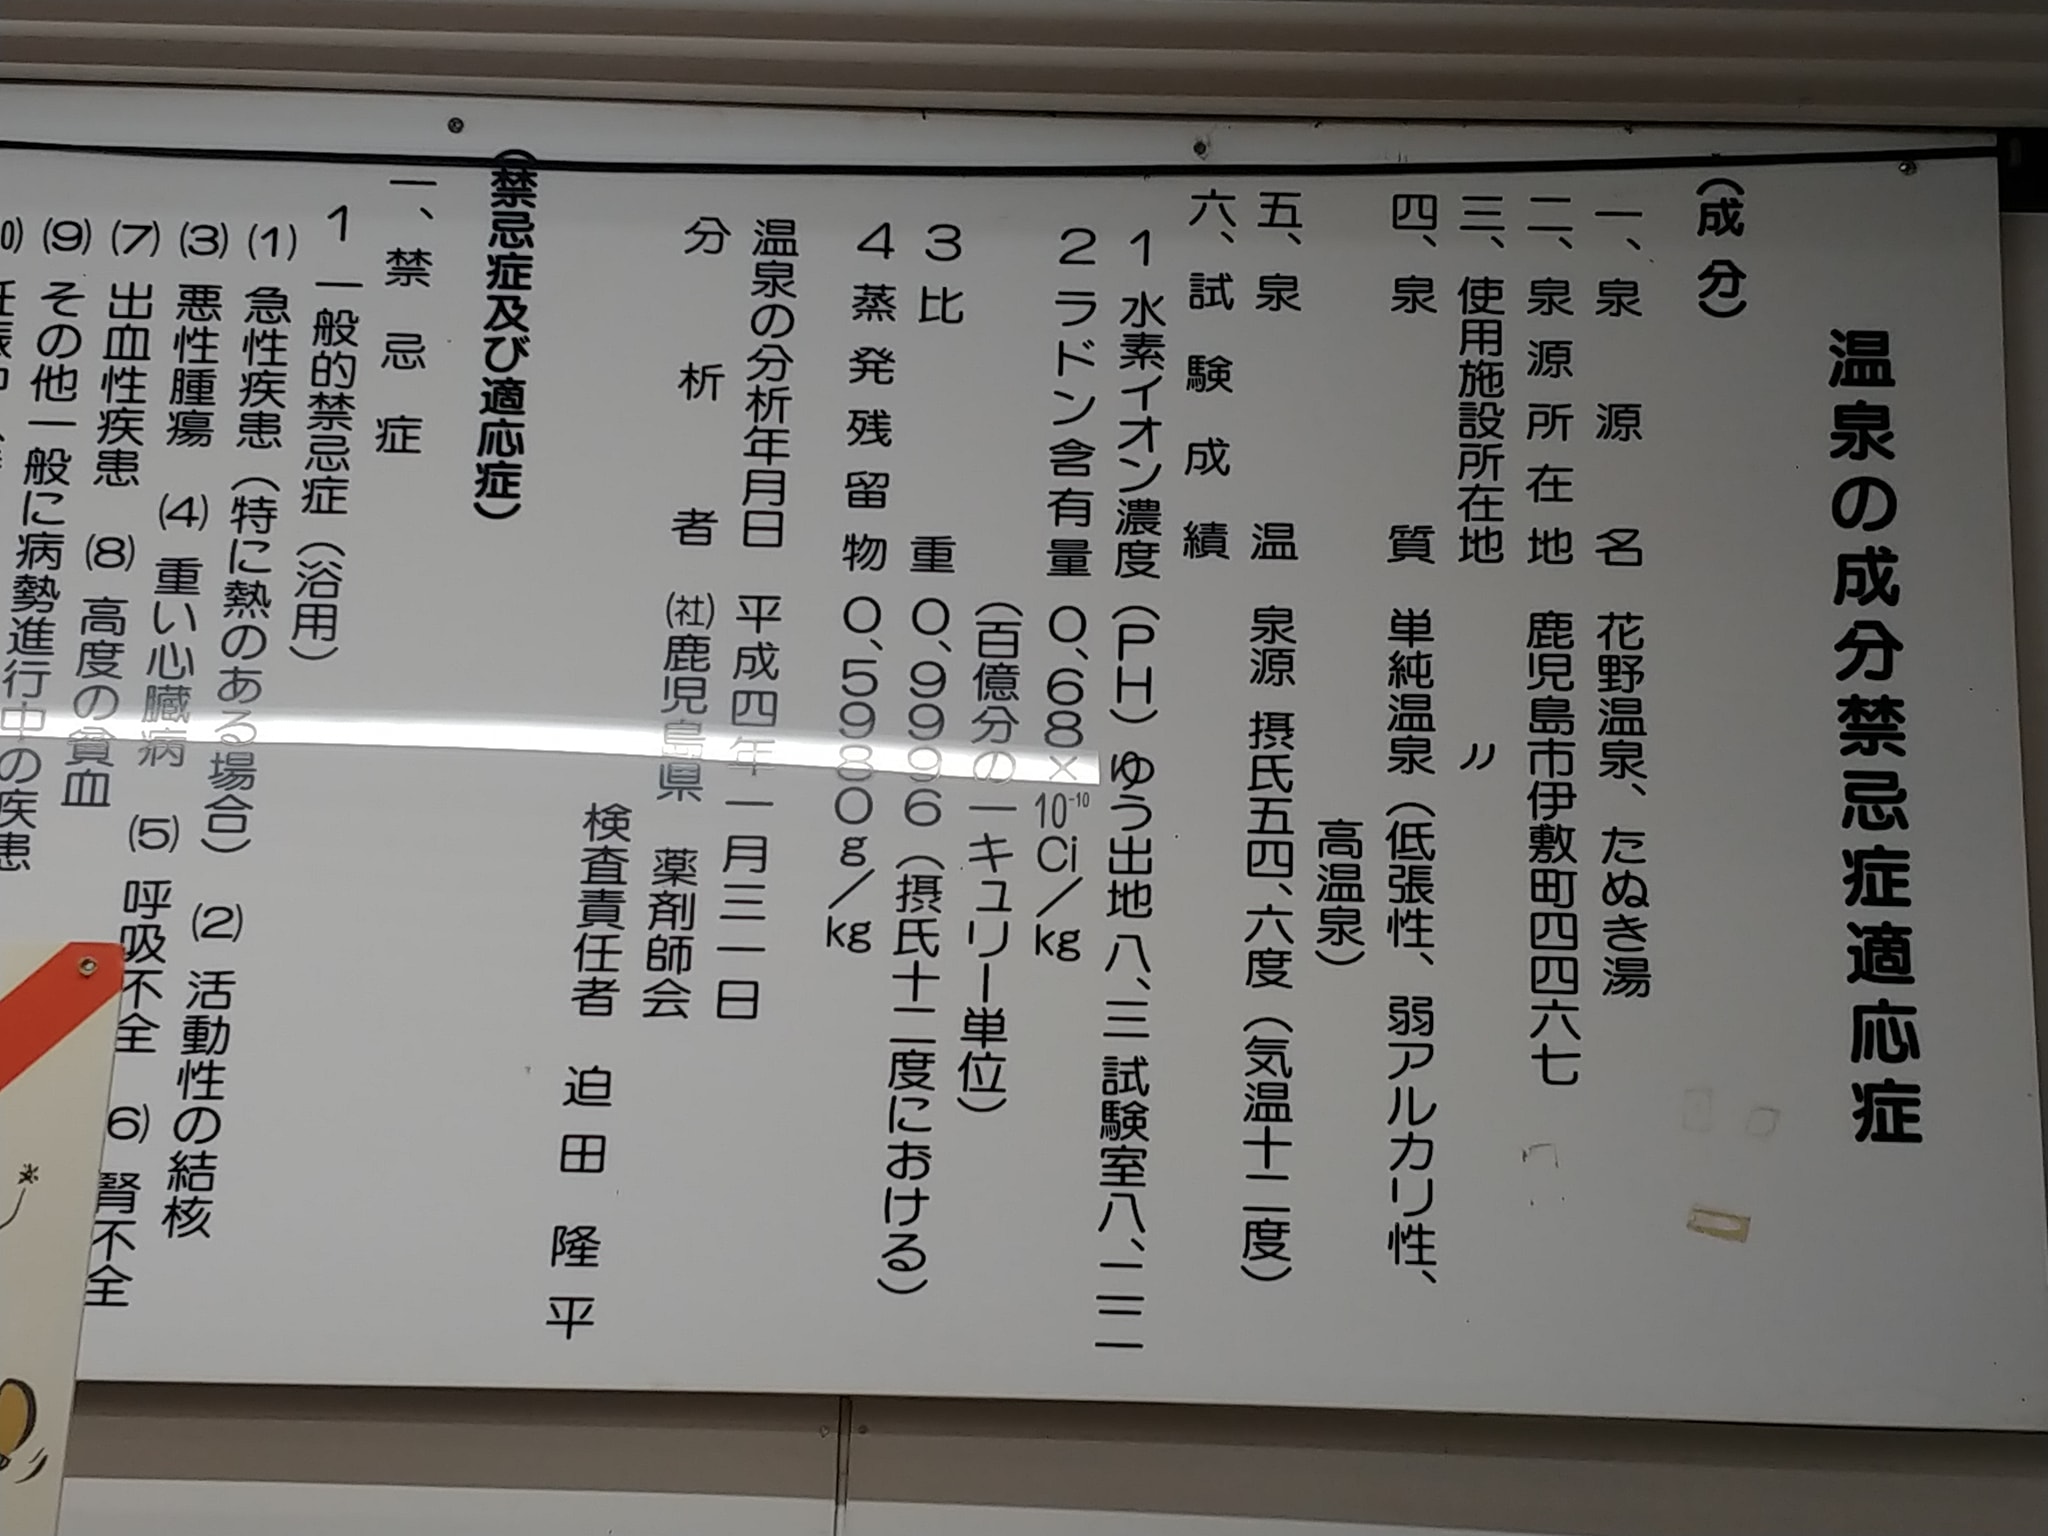 温泉の成分禁忌症適応症
(成分)
一、泉源名 花野温泉、たぬき湯
二、泉源所在地 鹿児島市伊敷町四四六七
三、使用施設所在地 〃
四、泉質 単純温泉(低張性、弱アルカリ性、
高温泉)
五、泉温 泉源 摂氏五四、六度(気温十二度)
六、試験成績
1 水素イオン濃度(PH)ゆう出地 八、三 試験室八、二二一
2 ラドン含有量 0、68×10⁻¹⁰Ci/kg
(百億分の一キュリー単位)
3 比重 0、9996(摂氏十二度における)
4 蒸発残留物 0、5980g/kg
温泉の分析年月日 平成四年一月三一日
分析者 ㈳鹿児島県 薬剤師会
検査責任者 迫田隆平
(禁忌症及び適応症)
一、禁忌症
1 一般的禁忌症(浴用)
(1) 急性疾患(特に熱のある場合) (2) 活動性の結核
(3) 悪性腫瘍 (4) 重い心臓病 (5) 呼吸不全 6) 腎不全
(7) 出血性疾患 (8) 高度の貧血
(9) その他一般に病勢進行中の疾患